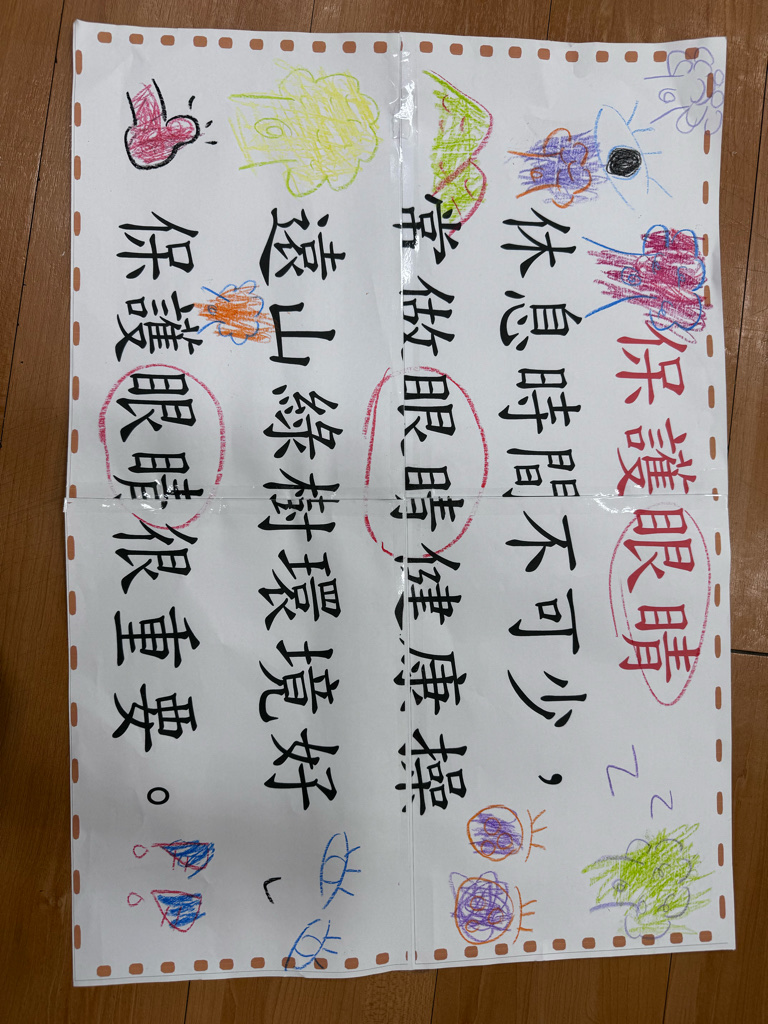 保護眼睛
休息時間不可少，
常做眼睛健康操
遠山綠樹環境好、
保護眼睛很重要。
zz